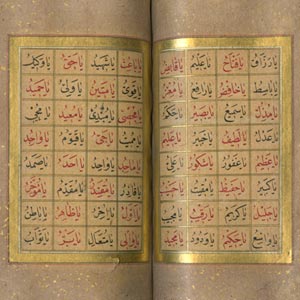 يا رزاق يا فتاح يا عليم يا قابض
يا باسط يا خافض يا رافع يا معز
يا مذل يا سميع يا بصير يا حكم
يا عدل يا لطيف يا خبير يا حليم
يا عظيم يا غفور يا شكور يا علي
يا كبير يا حفيظ يا مقيت يا حسيب
يا جليل يا كريم يا رقيب يا مجيب
يا واسع يا حكيم يا ودود يا مجيد
يا باعث يا شهيد يا حق يا وكيل
يا قوي يا متين يا ولي يا حميد
يا محصي يا مبدئ يا معيد يا محيي
يا مميت يا حي يا قيوم يا واجد
يا ماجد يا واحد يا احد يا صمد
يا قادر يا مقتدر يا مقدم يا مؤخر
يا اول يا آخر يا ظاهر يا باطن
يا والي يا متعال يا بر يا تواب